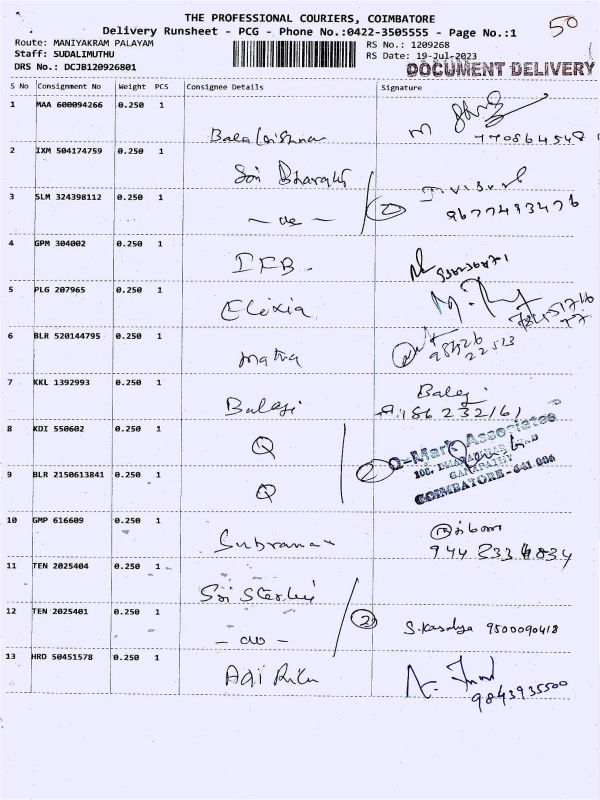 THE PROFESSIONAL COURIERS, COIMBATORE
50
Delivery Runsheet - PCG - Phone No.:0422-3505555 - Page No.:1
Route: MANIYAKRAM PALAYAM
RS No.: 1209268
Staff: SUDALIMUTHU
RS Date: 19-Jul-2023
DRS No.: DCJB120926801
DOCUMENT DELIVERY
S No Consignment No Weight PCS Consignee Details Signature
1 MAA 600094266 0.250 1 Balakrishna
2 IXM 504174759 0.250 1 Sri Bharathi
3 SLM 324398112 0.250 1 2
9677493476
4 GPM 304002 0.250 1 IFB
5 PLG 207965 0.250 1 Elixia
6 BLR 520144795 0.250 1
7 KKL 1392993 0.250 1 Balaji Balaji
8 KDI 550602 0.250 1 Q
Q-Mark Associates
9 BLR 2150613841 0.250 1 Q 2
GANAPATHY
COIMBATORE - 641 006
10 GMP 616609 0.250 1
11 TEN 2025404 0.250 1
12 TEN 2025401 0.250 1 2 S. Kasalya 9500090418
13 HRD 50451578 0.250 1
9843935500